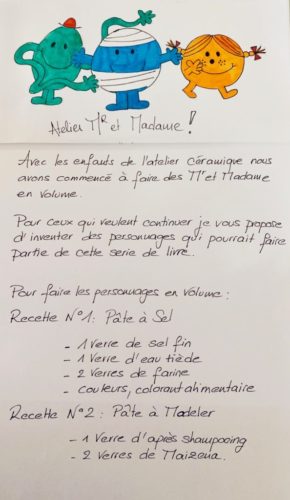 Atelier Mr et Madame !
Avec les enfants de l'atelier céramique nous
avons commencé à faire des Mr et Madame
en volume.
Pour ceux qui veulent continuer je vous propose
d'inventer des personnages qui pourrait faire
partie de cette serie de livre.
Pour faire les personnages en volume :
Recette N°1 : Pâte à Sel
- 1 Verre de sel fin
- 1 Verre d'eau tiède
- 2 Verres de farine
- couleurs, colorant alimentaire
Recette N°2 : Pâte à Modeler
- 1 Verre d'après shampooing
- 2 Verres de Maizena.